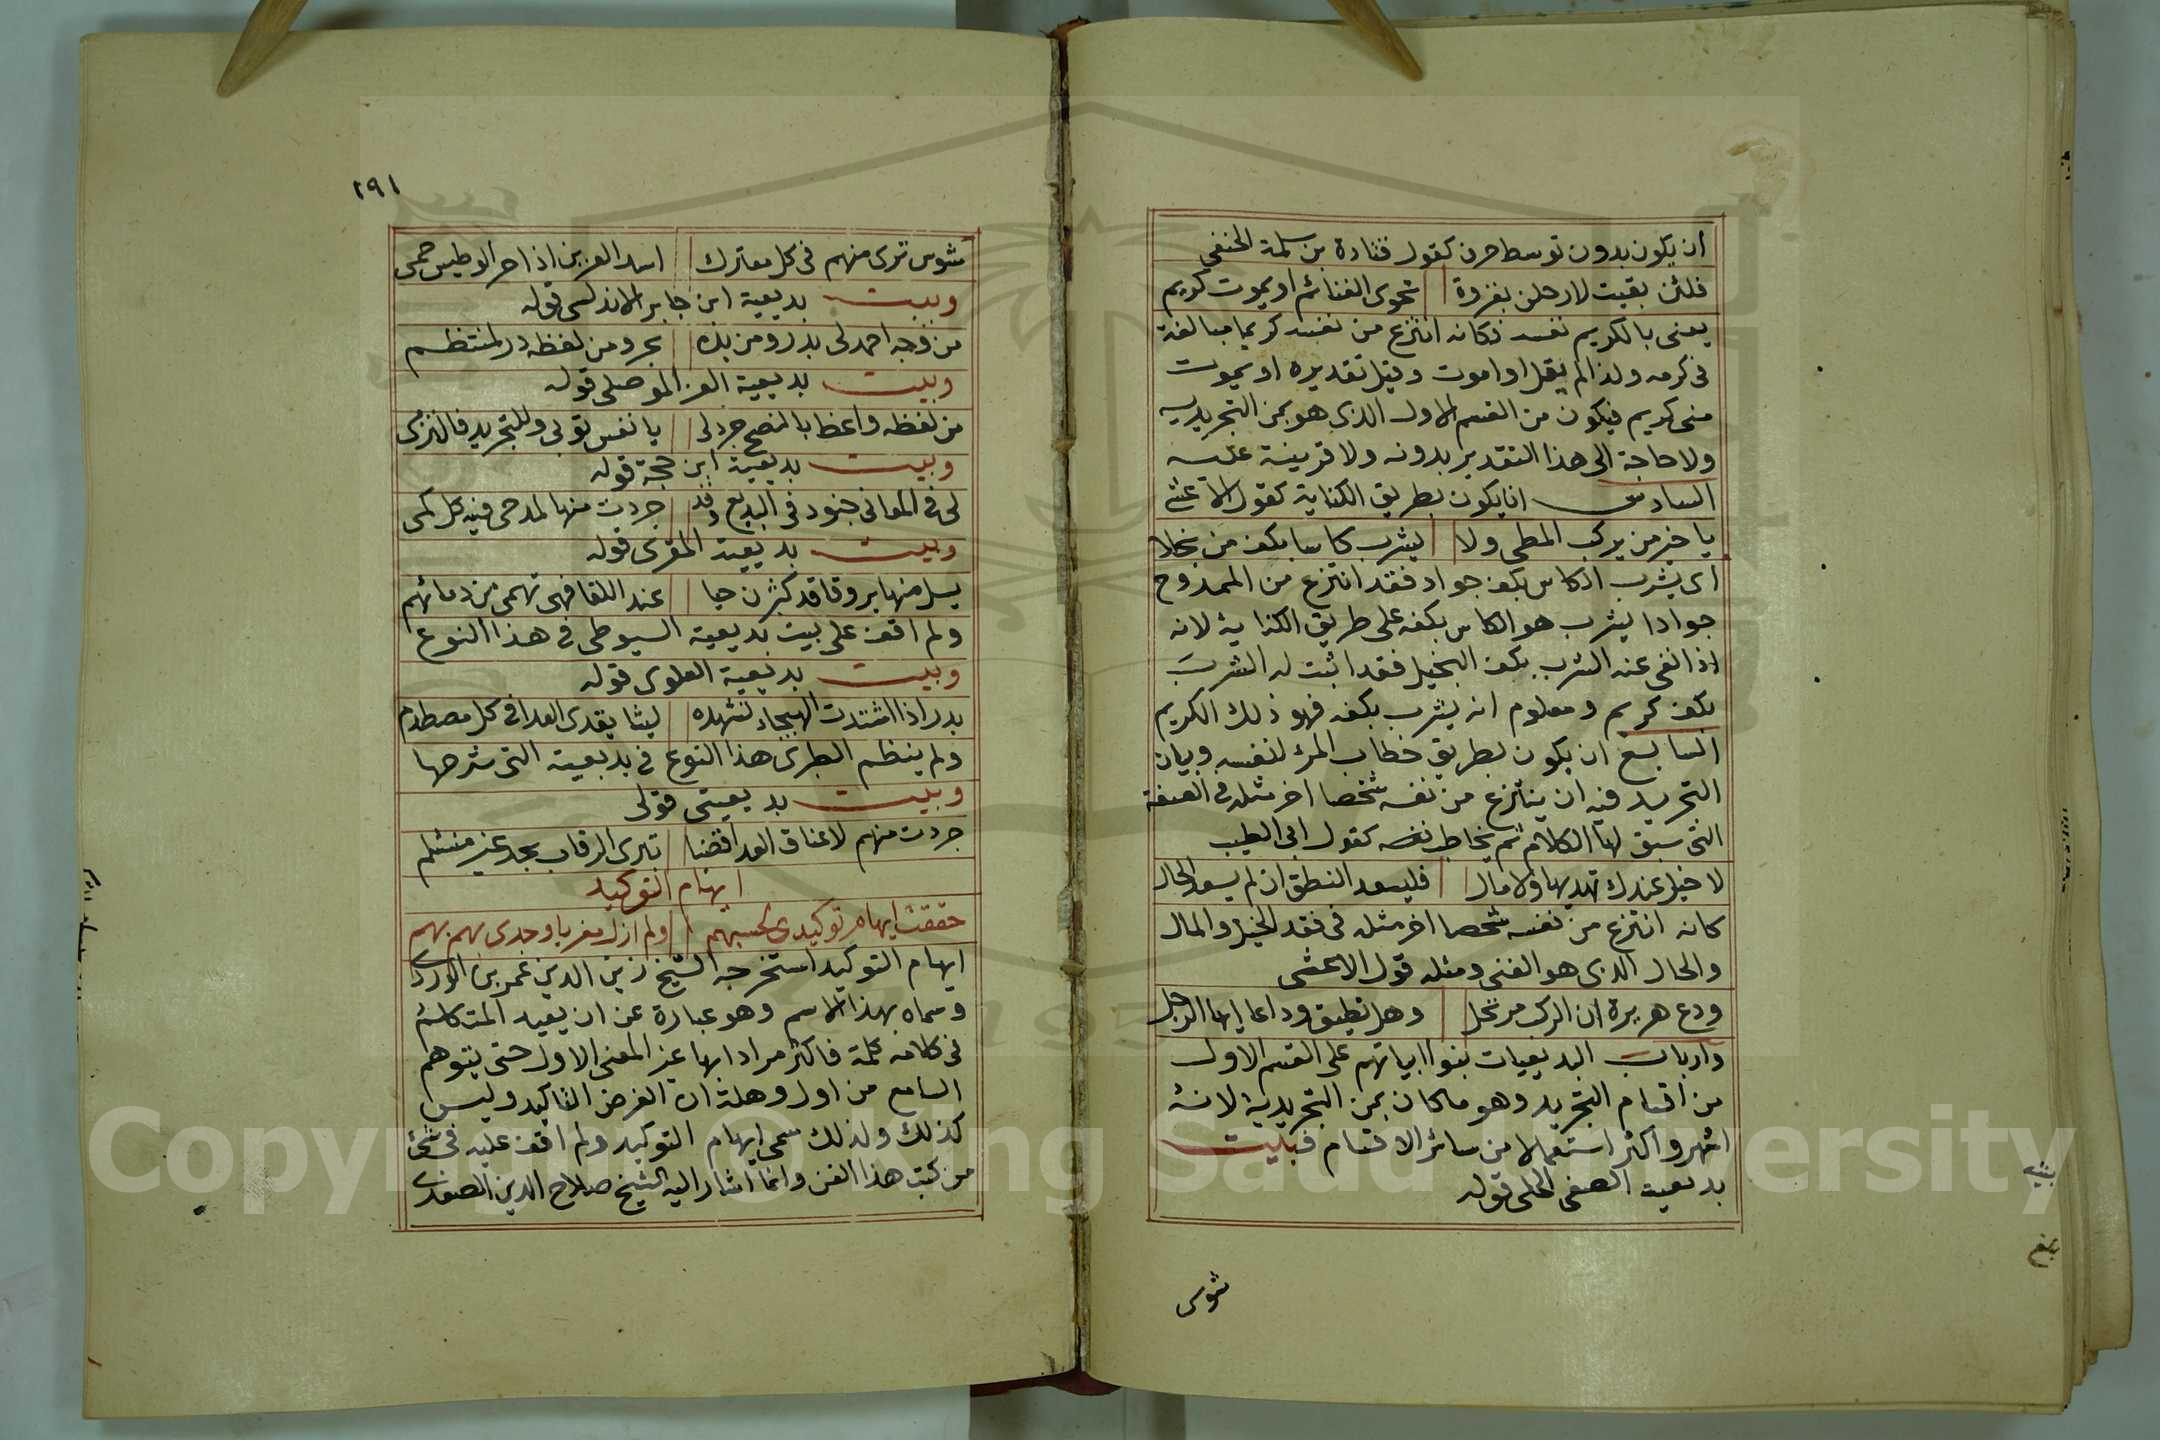 ان يكون بدون توسط حرف كقول قتادة بن سلمة الحنفي
فلئن بقيت لارحلن بغزوة تحوى الغنائم او يموت كريم
يعنى بالكريم نفسه فكانه انتزع من نفسه كريما مبالغة
فى كرمه ولذا لم يقل او اموت وقيل تقديره او يموت
منى كريم فيكون من القسم الاول الذى هو بمن التجريديه
ولا حاجة الى هذا التقدير بدونه ولا قرينة عليه
السادس ان يكون بطريق الكناية كقول الاعشى
يا خير من يركب المطى ولا يشرب كاسا بكف من بخلا
اى يشرب الكاس بكف جواد فقد انتزع من الممدوح
جوادا يشرب هو الكاس بكفه على طريق الكناية لانه
اذا نفى عنه الشرب بكف البخيل فقد اثبت له الشرب
بكف كريم ومعلوم انه يشرب بكفه فهو ذلك الكريم
السابع ان يكون بطريق خطاب المرء لنفسه وبيان
التجريد فيه ان ينتزع من نفسه شخصا اخر مثله فى الصفة
التى سبق لها الكلام ثم يخاطب نفسه كقول ابى الطيب
لا خيل عندك تهديها ولا مال فليسعد النطق ان لم يسعد الحال
كانه انتزع من نفسه شخصا اخر مثله فى فقد الخيل والمال
والحال الذى هو الغنى ومثله قول الاعشى
ودع هريرة ان الركب مرتحل وهل تطيق وداعا ايها الرجل
وارباب البديعيات بنوا ابياتهم على القسم الاول
من اقسام التجريد وهو ما كان بمن التجريدية لانه
اشهر واكثر استعمالا من سائر الاقسام فبيت
بديعية الصفى الحلى قوله
شوس
بلغ
٢٩١
شوس ترى منهم فى كل معترك اسد العرين اذا حر الوطيس حمى
وبيت بديعية ابن جابر الاندلسى قوله
من وجه احمد لى بدر ومن يده بحر ومن لفظه در لمنتظم
وبيت بديعية العز الموصلى قوله
من لفظه واعظ بالنصح جرد لى يا نفس توبى وللتجريد فالتزمى
وبيت بديعية ابن حجة قوله
لى فى المعانى جنود فى البديع وقد جردت منها لمدحى فيه كل كمى
وبيت بديعية المقرى قوله
يسل منها بروقا قد كثرن حيا عند اللقا فهى تهمى من دمائهم
ولم اقف على بيت بديعية السيوطى فى هذا النوع
وبيت بديعية العلوى قوله
بدر اذا اشتدت الهيجاء تشهده ليثا يقدى العدا فى كل مصطدم
ولم ينظم الطبرى هذا النوع فى بديعيته التى شرحها
وبيت بديعيتى قولى
جردت منهم لاعناق العدا قضبا تبرى الرقاب بحد غير منثلم
ايهام التوكيد
حققت ايهام توكيدى لحبهم ولم ازل مغريا وجدى بهم بهم
ايهام التوكيد استخرجه الشيخ زين الدين عمر بن الوردى
وسماه بهذا الاسم وهو عبارة عن ان يعيد المتكلم
فى كلامه كلمة فاكثر مرادا بها غير المعنى الاول حتى يتوهم
السامع من اول وهلة ان الغرض التاكيد وليس
كذلك ولذلك سمى ايهام التوكيد ولم اقف عليه فى شئ
من كتب هذا الفن وانما اشار اليه الشيخ صلاح الدين الصفدى
Copyright © King Saud University